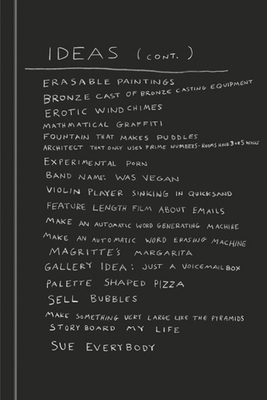 IDEAS (CONT.)
ERASABLE PAINTINGS
BRONZE CAST OF BRONZE CASTING EQUIPMENT
EROTIC WINDCHIMES
MATHMATICAL GRAFFITI
FOUNTAIN THAT MAKES PUDDLES
ARCHITECT THAT ONLY USES PRIME NUMBERS - ROOMS HAVE 3 OR 5 WALLS
EXPERIMENTAL PORN
BAND NAME: WAS VEGAN
VIOLIN PLAYER SINKING IN QUICKSAND
FEATURE LENGTH FILM ABOUT EMAILS
MAKE AN AUTOMATIC WORD GENERATING MACHINE
MAKE AN AUTOMATIC WORD ERASING MACHINE
MAGRITTE'S MARGARITA
GALLERY IDEA: JUST A VOICEMAILBOX
PALETTE SHAPED PIZZA
SELL BUBBLES
MAKE SOMETHING VERY LARGE LIKE THE PYRAMIDS
STORYBOARD MY LIFE
SUE EVERYBODY